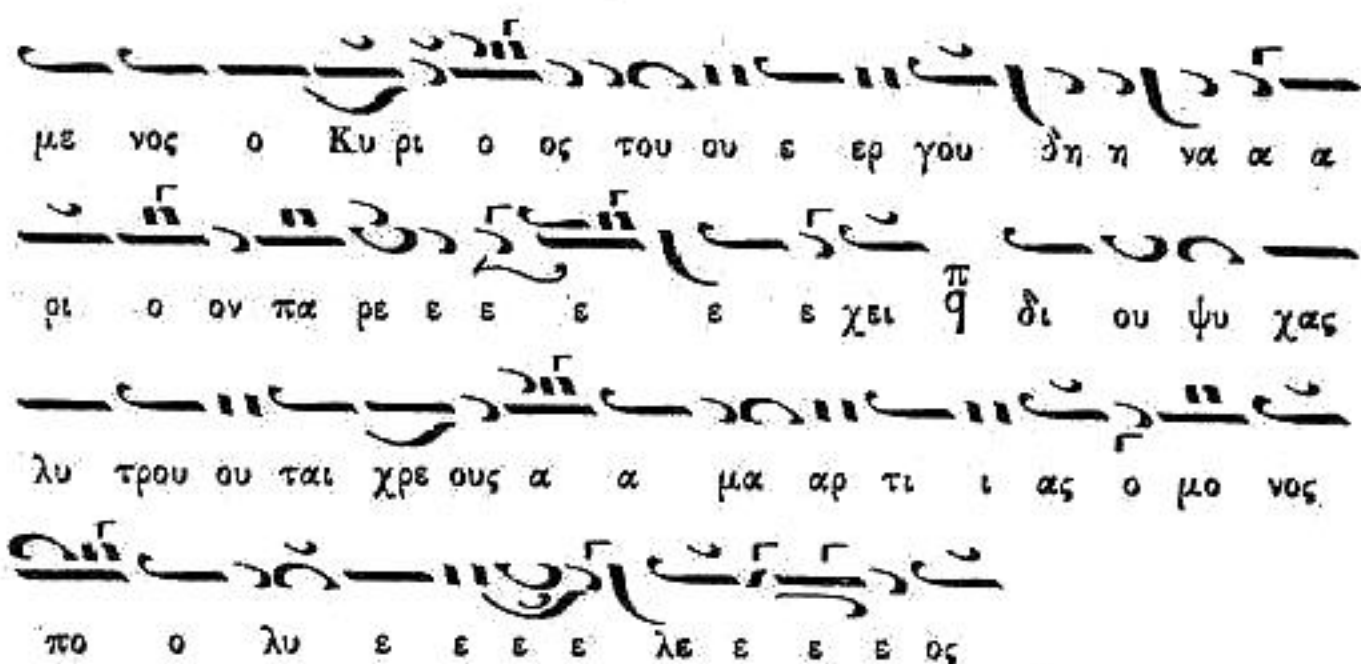 με νος ο Κυ ρι ο ος του ου ε ερ γου δη η να α α
ρι ο ον πα ρε ε ε ε ε ε χει π q δι ου ψυ χας
λυ τρου ου ται χρε ους α α μα αρ τι ι ας ο μο νος
πο ο λυ ε ε ε ε λε ε ε ε ος